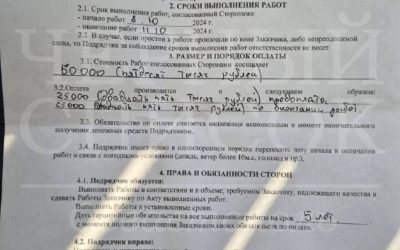 2. СРОКИ ВЫПОЛНЕНИЯ РАБОТ
2.1. Срок выполнения работ, согласованный Сторонами:
- начало работ 8.10 2024 г.
- окончание работ 11.10 2024 г.
2.2. В случае, если простои в работе произошли по вине Заказчика, либо непреодолимой
силы, то Подрядчик за соблюдение сроков выполнения работ ответственности не несет.
3. РАЗМЕР И ПОРЯДОК ОПЛАТЫ
3.1. Стоимость Работ согласованная Сторонами составляет
50 000 (пятьдесят тысяч рублей)
3.2. Оплата производится в следующим образом:
25 000 (двадцать пять тысяч рублей) предоплата
25 000 (двадцать пять тысяч рублей) - по окончании работ.
3.3. Обязательство по оплате считается надлежаще исполненным в момент окончательного
получения денежных средств Подрядчиком.
3.4. Подрядчик имеет право в одностороннем порядке переносить дату начала и окончания
работ в связи с погодными условиями (дождь, ветер более 10м.с, гололед и пр.),
4. ПРАВА И ОБЯЗАННОСТИ СТОРОН
4.1. Подрядчик обязуется:
Выполнять Работы в соответствии и в объеме, требуемом Заказчику, надлежащего качества и
сдавать Работы Заказчику по Акту выполненных работ.
Выполнять Работы в установленные сроки.
Дать гарантийные обязательства на все выполненные работы на срок 5 лет.
с момента полного выполнения Заказчиком своих обязательств по оплате.
4.2. Подрядчик вправе: